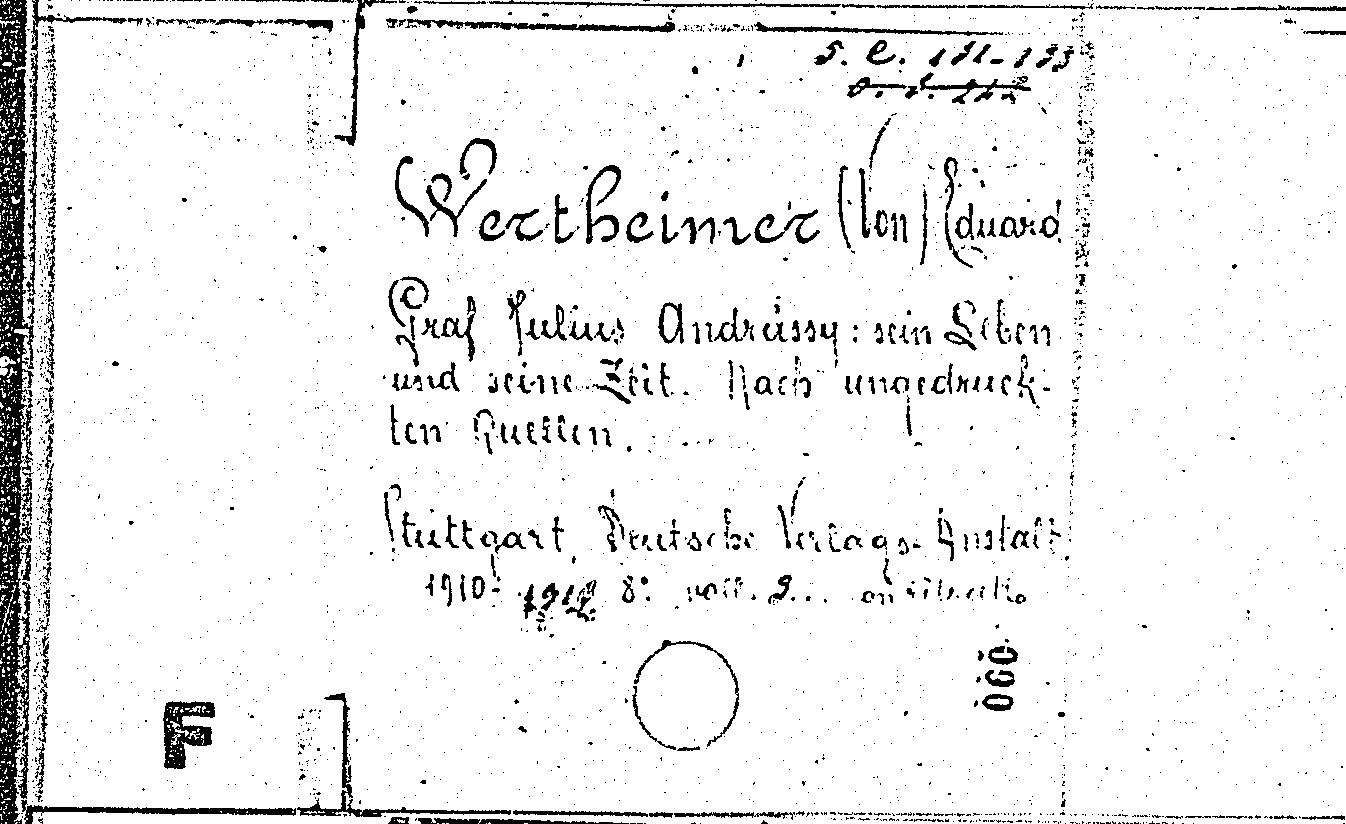 5. C. 131-133
Wertheimer (Von) Eduard
Graf Julius Andrássy: sein Leben
und seine Zeit. Nach ungedruck-
ten Quellen.
Stuttgart, Deutsche Verlags-Anstalt
1910- 8°. voll.
060
F